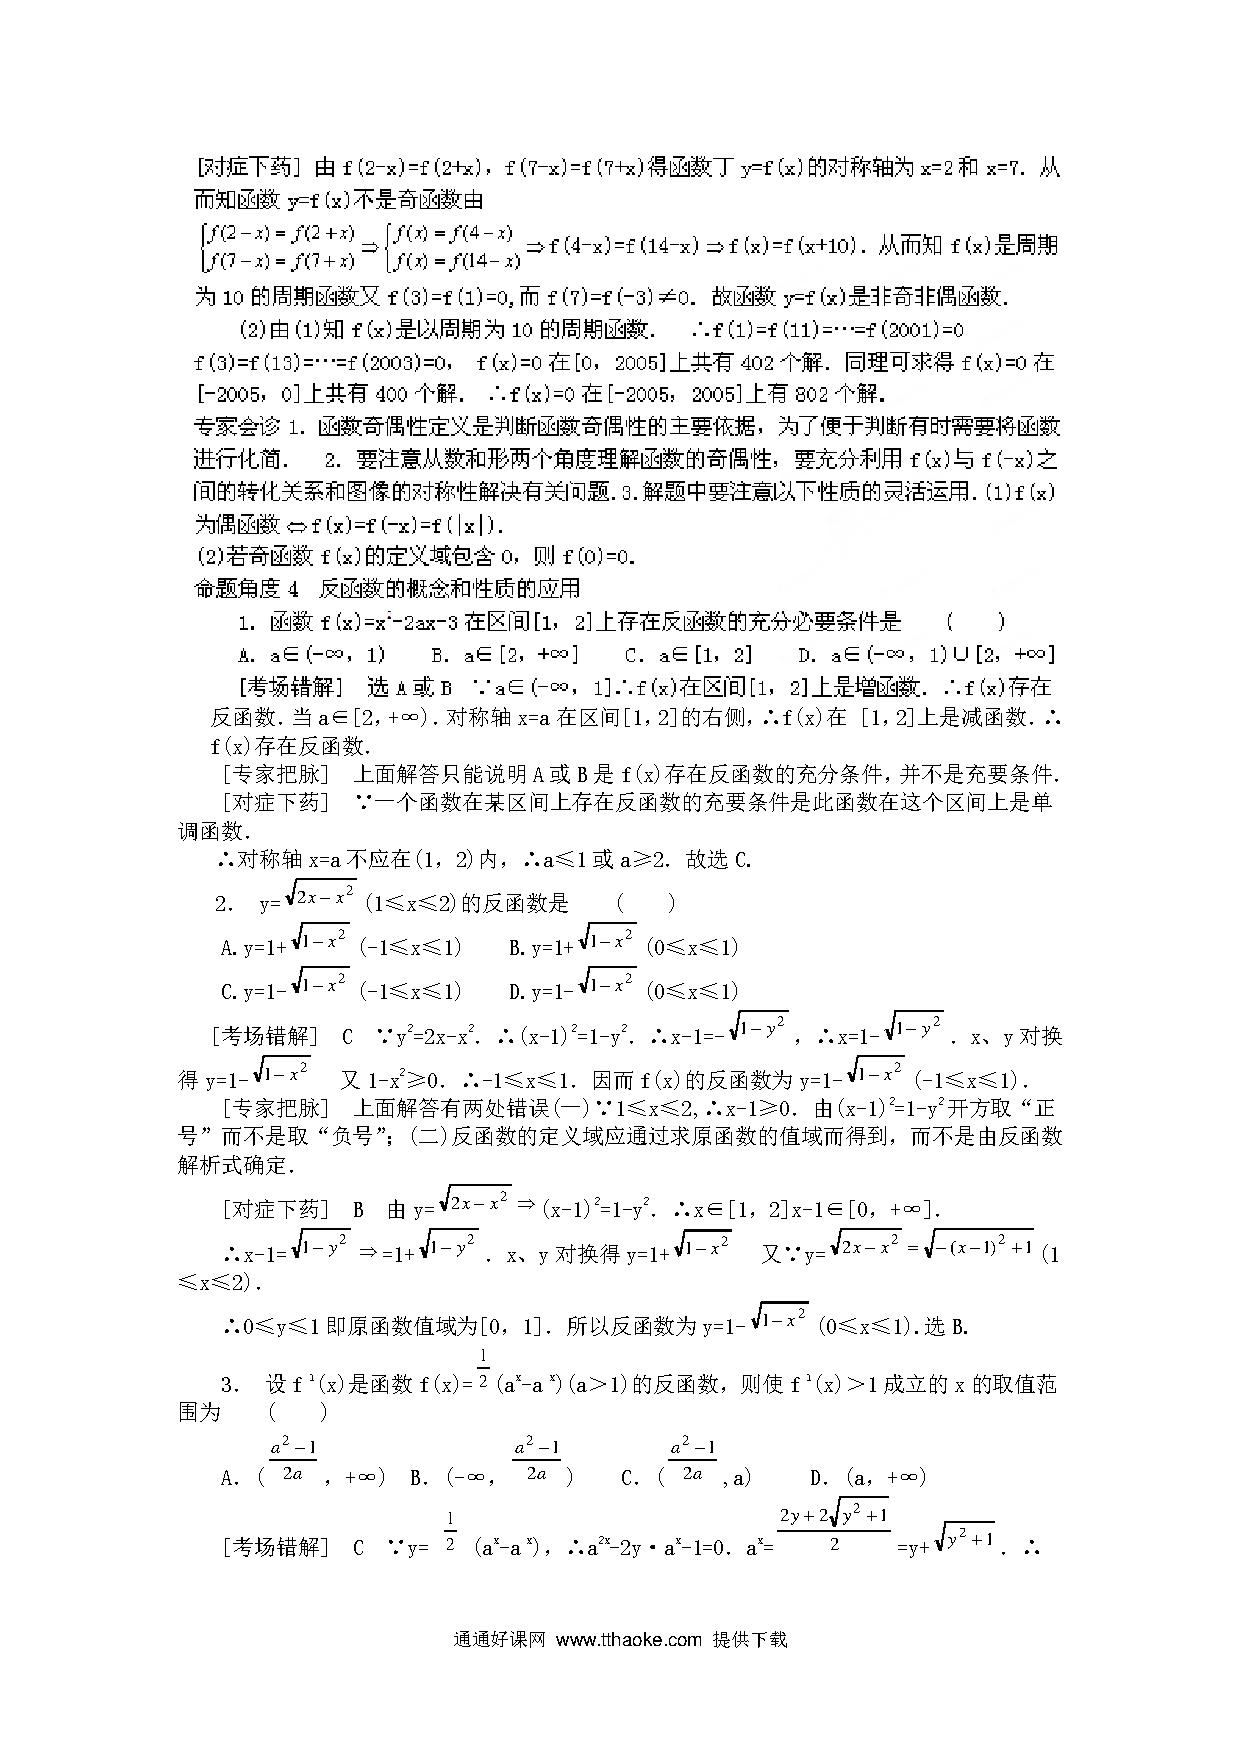 [对症下药] 由 f(2-x)=f(2+x), f(7-x)=f(7+x)得函数丁 y=f(x)的对称轴为 x=2和 x=7. 从
而知函数 y=f(x)不是奇函数由
{f(2-x)=f(2+x) f(7-x)=f(7+x) ⇒ {f(x)=f(4-x) f(x)=f(14-x) ⇒f(4-x)=f(14-x)⇒f(x)=f(x+10). 从而知 f(x)是周期
为 10 的周期函数又 f(3)=f(1)=0,而 f(7)=f(-3)≠0. 故函数 y=f(x)是非奇非偶函数.
(2)由(1)知 f(x)是以周期为 10 的周期函数. ∴f(1)=f(11)=…=f(2001)=0
f(3)=f(13)=…=f(2003)=0, f(x)=0 在[0, 2005]上共有 402 个解. 同理可求得 f(x)=0 在
[-2005, 0]上共有 400 个解. ∴f(x)=0 在[-2005, 2005]上有 802 个解.
专家会诊 1. 函数奇偶性定义是判断函数奇偶性的主要依据, 为了便于判断有时需要将函数
进行化简. 2. 要注意从数和形两个角度理解函数的奇偶性, 要充分利用 f(x)与 f(-x)之
间的转化关系和图像的对称性解决有关问题.3.解题中要注意以下性质的灵活运用.(1)f(x)
为偶函数⇔f(x)=f(-x)=f(|x|).
(2)若奇函数 f(x)的定义域包含 0, 则 f(0)=0.
命题角度 4 反函数的概念和性质的应用
1. 函数 f(x)=x²-2ax-3 在区间[1, 2]上存在反函数的充分必要条件是 ( )
A. a∈(-∞, 1) B. a∈[2, +∞] C. a∈[1, 2] D. a∈(-∞, 1)∪[2, +∞]
[考场错解] 选 A 或 B ∵a∈(-∞, 1]∴f(x)在区间[1, 2]上是增函数. ∴f(x)存在
反函数.当a∈[2,+∞).对称轴x=a 在区间[1,2]的右侧,∴f(x)在 [1,2]上是减函数.∴
f(x)存在反函数.
[专家把脉] 上面解答只能说明 A 或 B 是 f(x)存在反函数的充分条件,并不是充要条件.
[对症下药] ∵一个函数在某区间上存在反函数的充要条件是此函数在这个区间上是单
调函数.
∴对称轴 x=a 不应在(1, 2)内, ∴a≤1 或 a≥2. 故选 C.
2. y=√(2x-x²) (1≤x≤2)的反函数是 ( )
A.y=1+√(1-x²) (-1≤x≤1) B.y=1+√(1-x²) (0≤x≤1)
C.y=1-√(1-x²) (-1≤x≤1) D.y=1-√(1-x²) (0≤x≤1)
[考场错解] C ∵y²=2x-x². ∴(x-1)²=1-y². ∴x-1=-√(1-y²) , ∴x=1-√(1-y²) . x、y 对换
得 y=1-√(1-x²) 又 1-x²≥0. ∴-1≤x≤1. 因而 f(x)的反函数为 y=1-√(1-x²) (-1≤x≤1).
[专家把脉] 上面解答有两处错误(一)∵1≤x≤2,∴x-1≥0. 由(x-1)²=1-y²开方取“正
号”而不是取“负号”; (二)反函数的定义域应通过求原函数的值域而得到, 而不是由反函数
解析式确定.
[对症下药] B 由 y=√(2x-x²) ⇒(x-1)²=1-y². ∴x∈[1, 2]x-1∈[0, +∞].
∴x-1=√(1-y²) ⇒=1+√(1-y²) . x、y 对换得 y=1+√(1-x²) 又∵y=√(2x-x²) = √(-(x-1)²+1) (1
≤x≤2).
∴0≤y≤1 即原函数值域为[0, 1]. 所以反函数为 y=1-√(1-x²) (0≤x≤1).选 B.
3. 设 f⁻¹(x)是函数 f(x)=1/2(aˣ-a⁻ˣ)(a>1)的反函数, 则使 f⁻¹(x)>1 成立的 x 的取值范
围为 ( )
A. ((a²-1)/2a , +∞) B. (-∞, (a²-1)/2a ) C. ((a²-1)/2a ,a) D. (a, +∞)
[考场错解] C ∵y= 1/2 (aˣ-a⁻ˣ), ∴a²ˣ-2y·aˣ-1=0. aˣ=(2y+2√(y²+1))/2 =y+√(y²+1) . ∴
通通好课网 www.tthaoke.com 提供下载